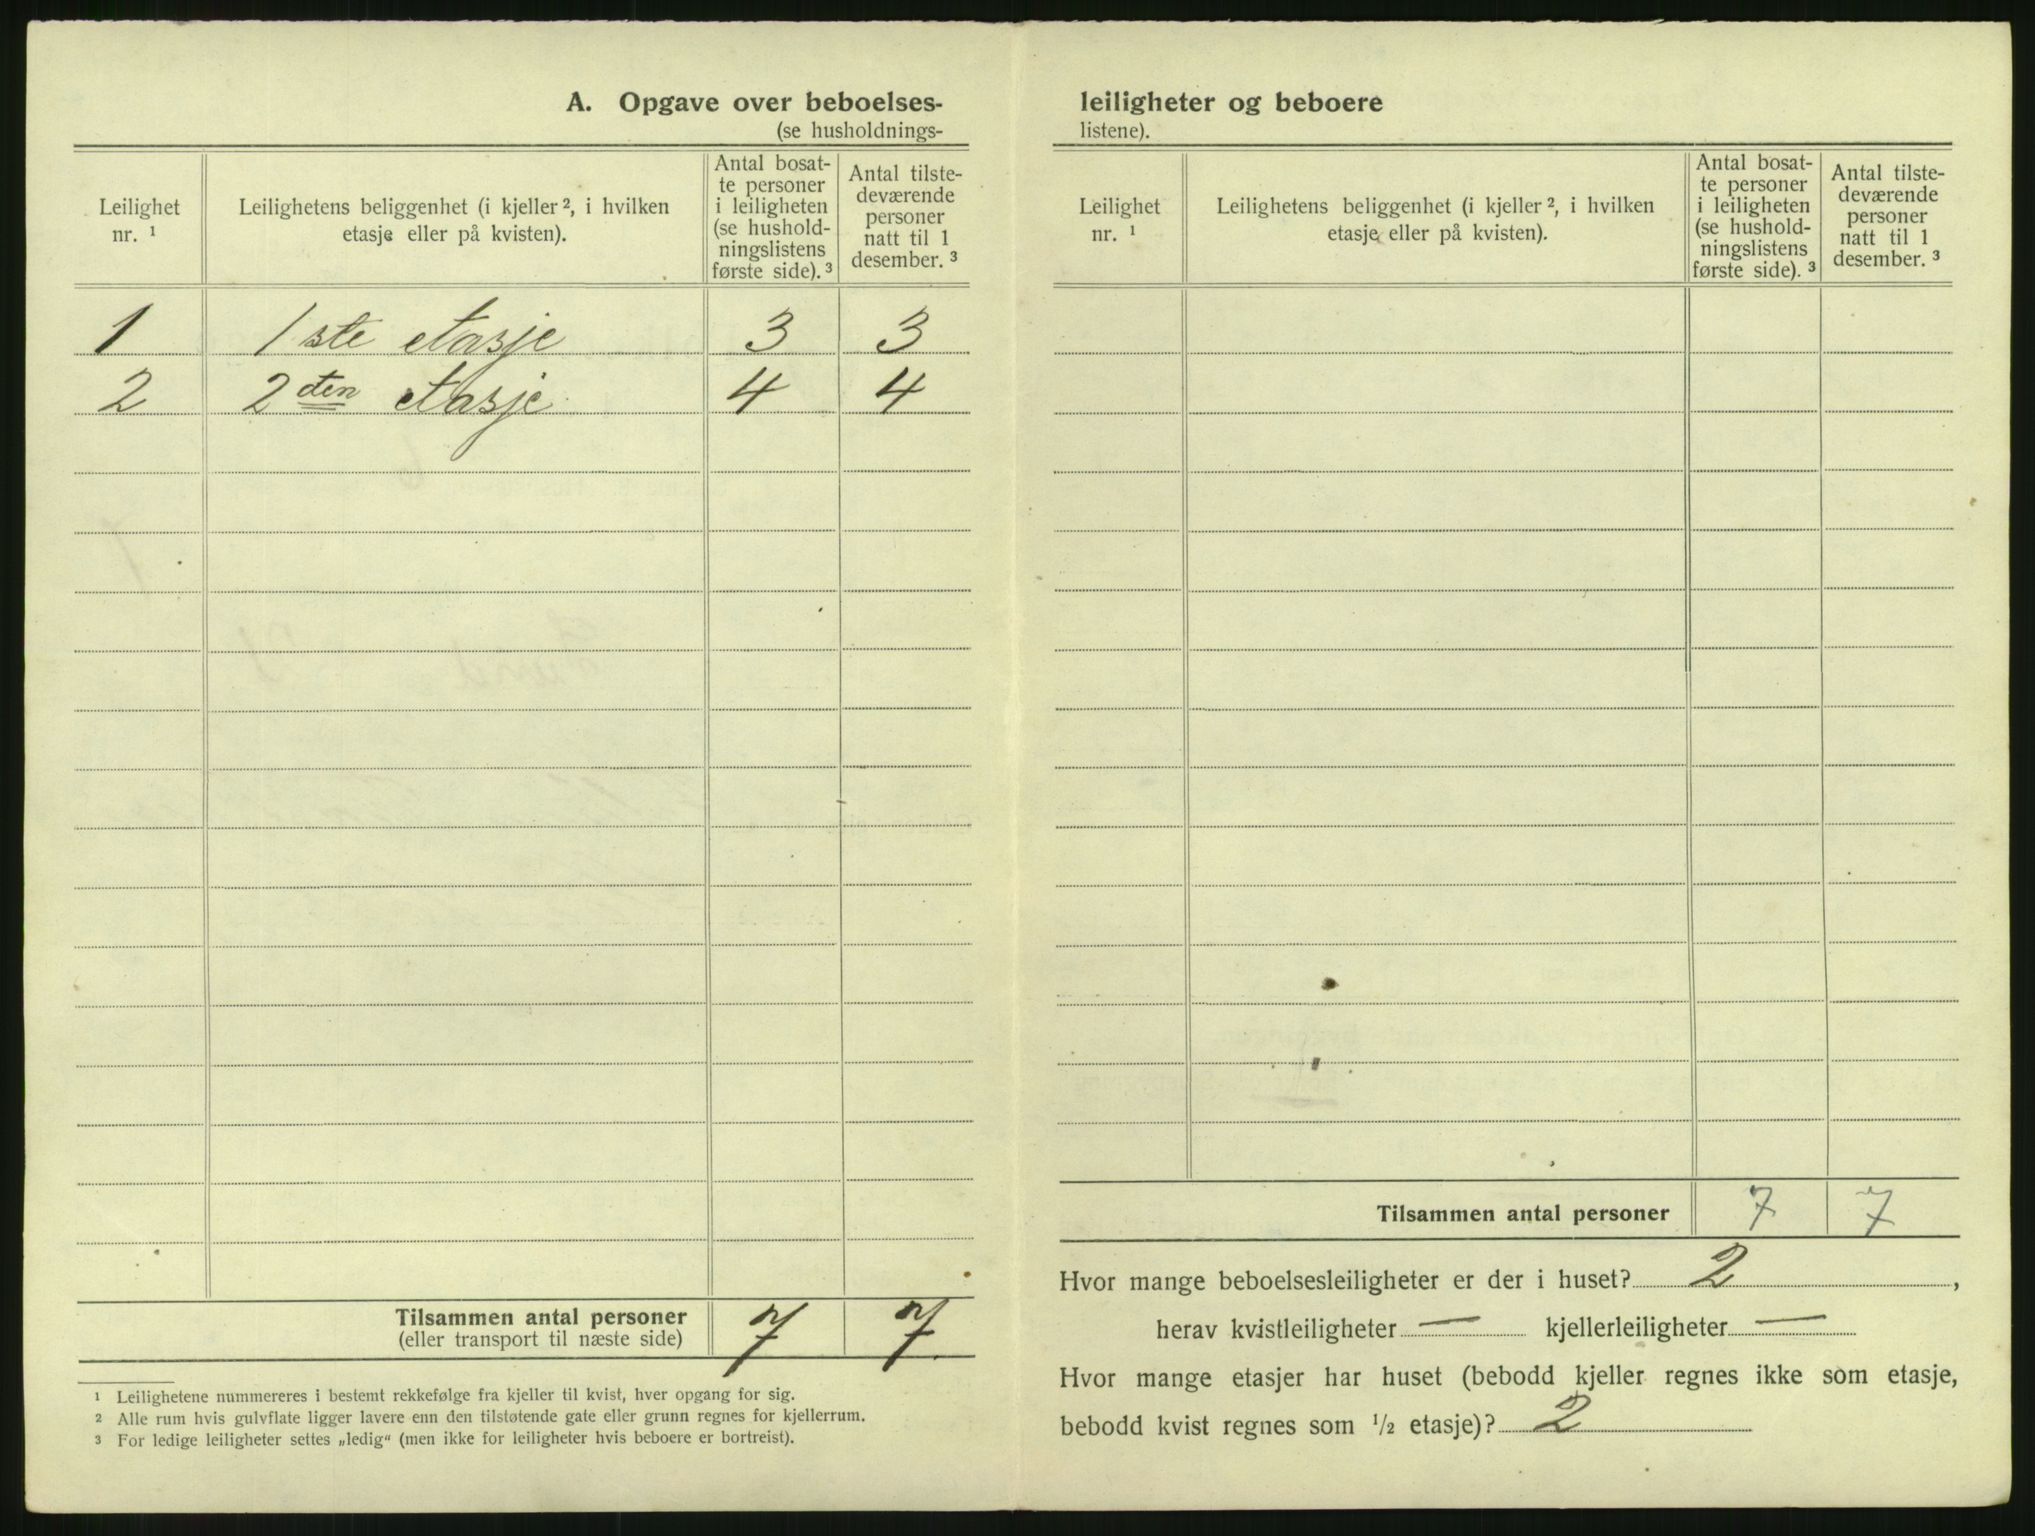 A. Opgave over beboelses-
(se husholdnings-
Leilighet
nr. ¹
Leilighetens beliggenhet (i kjeller ², i hvilken
etasje eller på kvisten).
Antal bosat-
te personer
i leiligheten
(se hushold-
ningslistens
første side). ³
Antal tilste-
deværende
personer
natt til 1
desember. ³
1 1ste etasje 3 3
2 2den etasje 4 4
Tilsammen antal personer 7 7
(eller transport til næste side)
¹ Leilighetene nummereres i bestemt rekkefølge fra kjeller til kvist, hver opgang for sig.
² Alle rum hvis gulvflate ligger lavere enn den tilstøtende gate eller grunn regnes for kjellerrum.
³ For ledige leiligheter settes „ledig“ (men ikke for leiligheter hvis beboere er bortreist).
leiligheter og beboere
listene).
Leilighet
nr. ¹
Leilighetens beliggenhet (i kjeller ², i hvilken
etasje eller på kvisten).
Antal bosat-
te personer
i leiligheten
(se hushold-
ningslistens
første side). ³
Antal tilste-
deværende
personer
natt til 1
desember. ³
Tilsammen antal personer 7 7
Hvor mange beboelsesleiligheter er der i huset? 2 ,
herav kvistleiligheter — kjellerleiligheter —
Hvor mange etasjer har huset (bebodd kjeller regnes ikke som etasje,
bebodd kvist regnes som ½ etasje)? 2